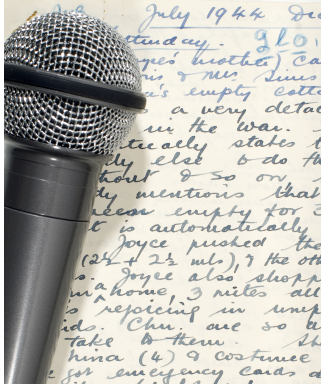 July 1944
turday. glo
ye's mother) Ca
ris & Mrs. Sims
a's empty cott
a very detai
in the war.
tically states t
dy else to do th
thout & So on,
dy mentions that
been empty for 3
t is automatically
Joyce pushed the
(2½ + 2½ mls), & the oth
s. Joyce also shopp
in a home, 3 miles all
is rejoicing in unexp
ids. Chn. are so a
take to them. Sh
hina (4) & costume
got emergency cards a